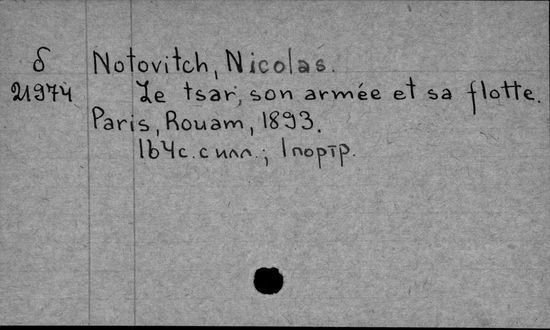 δ Notovitch, Nicolas.
21974 Le tsar, son armée et sa flotte.
Paris, Rouam, 1893.
164с. с илл.; 1 портр.